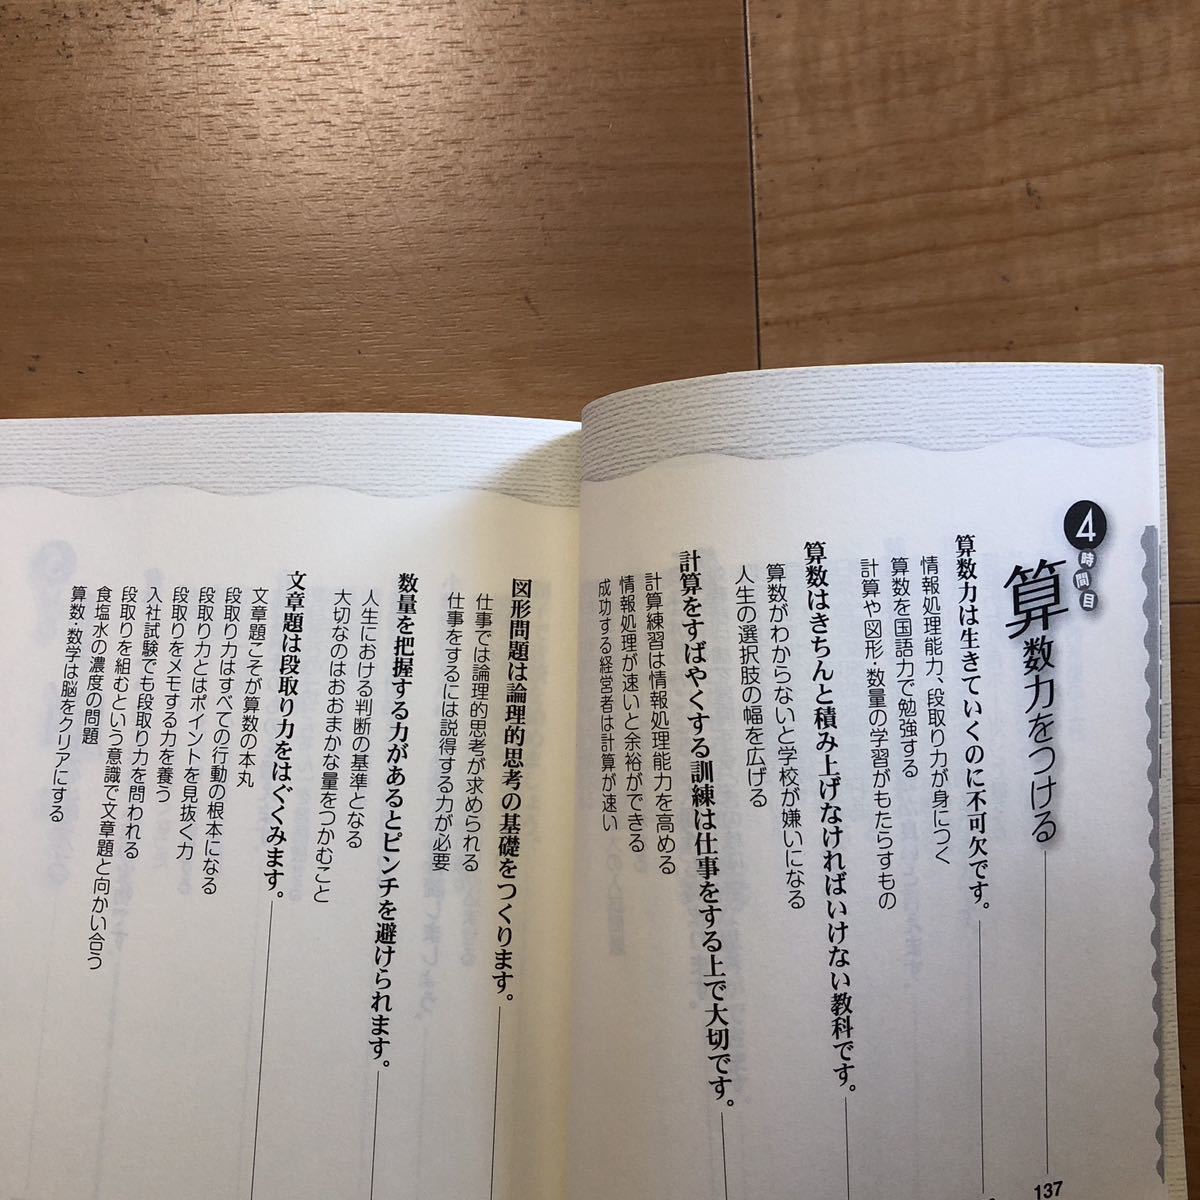 4時間目
算数力をつける
137
算数力は生きていくのに不可欠です。
情報処理能力、段取り力が身につく
算数を国語力で勉強する
計算や図形・数量の学習がもたらすもの
算数はきちんと積み上げなければいけない教科です。
算数がわからないと学校が嫌いになる
人生の選択肢の幅を広げる
計算をすばやくする訓練は仕事をする上で大切です。
計算練習は情報処理能力を高める
情報処理が速いと余裕ができる
成功する経営者は計算が速い
図形問題は論理的思考の基礎をつくります。
仕事では論理的思考が求められる
仕事をするには説得する力が必要
数量を把握する力があるとピンチを避けられます。
人生における判断の基準となる
大切なのはおおまかな量をつかむこと
文章題は段取り力をはぐくみます。
文章題こそが算数の本丸
段取り力はすべての行動の根本になる
段取り力とはポイントを見抜く力
段取りをメモする力を養う
入社試験でも段取り力を問われる
段取りを組むという意識で文章題と向かい合う
食塩水の濃度の問題
算数・数学は脳をクリアにする